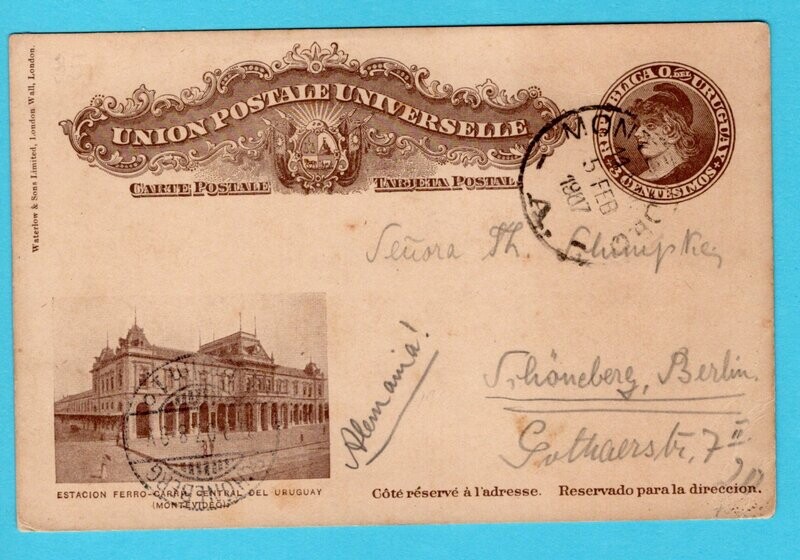 Waterlow & Sons Limited, London Wall, London.
UNION POSTALE UNIVERSELLE
CARTE POSTALE TARJETA POSTAL
REPUBLICA O. DEL URUGUAY
3 CENTESIMOS
MON
5 FEB
1907
Señora Th. Schimpke
Alemania!
Schöneberg, Berlin.
Gothaerstr. 7 II
SCHÖNEBERG
ESTACION FERRO-CARRIL CENTRAL DEL URUGUAY
(MONTEVIDEO)
Côté réservé à l'adresse. Reservado para la direccion.